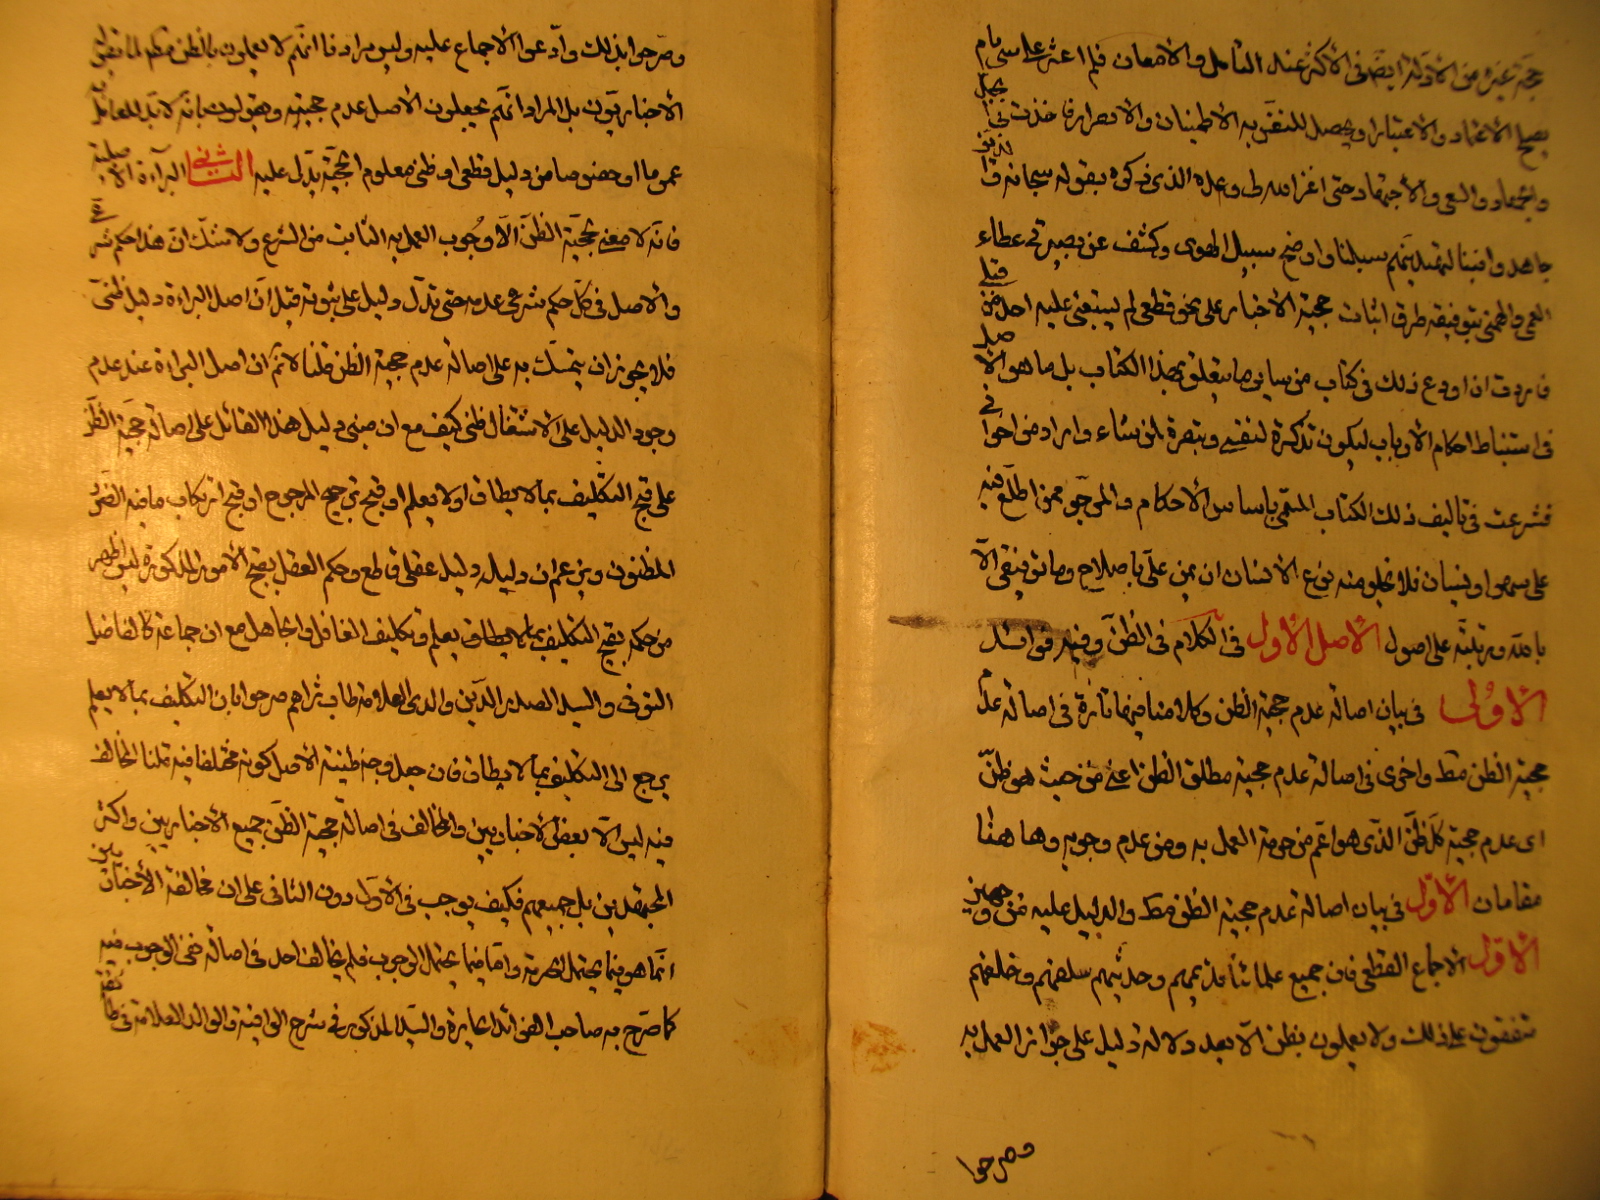 حجية غيره من الأدلة ايضا في الأكثر عند التأمل والامعان فلم اعثر على شئ تام
يصلح الاعتماد والاعتبار او يحصل للنفس به الاطمينان والاصرار فاخذت في
والجهاد والسعي والاجتهاد حتى وعده الذي ذكره بقوله سبحانه
جاهدوا فينا لنهدينهم سبلنا واوضح سبيل الهدى وكشف عن بصيرتي غطاء
العمى والهمني بتوفيقه طرق اثبات حجية الاخبار على نحو قطعي لم يسبقني عليه احد من قبلي
فاردت ان اودع ذلك في كتاب من سايرما يتعلق بهذا الكتاب بل ما هو الاصل
في استنباط احكام الارباب ليكون تذكرة لنفسي وتبصرة لمن شاء واراد من اخواني
فشرعت في تاليف ذلك الكتاب المسمى باساس الاحكام والمرجو ممن اطلع فيه
على سهو او نسيان فلا يخلو منه نوع الانسان ان يمن على باصلاح وما توفيقي الا
بالله ورتبته على اصول الاصل الاول في الكلام في الظن وفيه فوائد
الاولى في بيان اصالة عدم حجية الظن وكلامنا فيها تارة في اصالة عدم
حجية الظن مط واخرى في اصالة عدم حجية مطلق الظن اعني من حيث هو ظن
اى عدم حجية كل ظن الذي هو اعم من حرمة العمل به ومن عدم وجوبه وهاهنا
مقامان الاول في بيان اصالة عدم حجية الظن مط والدليل عليه من وجهين
الاول الاجماع القطعي فان جميع علمائنا قديمهم وحديثهم سلفهم وخلفهم
متفقون على ذلك ولا يعملون بظن الا بعد دلالة دليل على جواز العمل به
وصرحوا
وصرحوا بذلك وادعوا الاجماع عليه وليس مرادنا انهم لا يعملون بالظن مط كما يقوله
الاخباريون بل المراد انهم يجعلون الاصل عدم حجيته ويقولون بانه لا بد للعامل به
عموما او خصوصا من دليل قطعي او ظني معلوم الحجية يدل عليه الثاني البرآءة الاصلية
فانه لا معنى لحجية الظن الا وجوب العمل به الثابت من الشرع ولا شك ان هذا حكم شرعي
والاصل في كل حكم شرعي عدمه حتى تدل دليل على ثبوته قيل ان اصل البراءة دليل ظني
فلا يجوز ان يتمسك به على اصالة عدم حجية الظن قلنا لا نم ان اصل البراءة عند عدم
وجود الدليل على الاشتغال ظني كيف مع ان مبنى دليل هذا القائل على اصالة حجية الظن
على قبح التكليف بما لا يطاق او لا يعلم او قبح ترجيح المرجوح او قبح ارتكاب ما فيه الضرر
المظنون ويزعم ان دليله دليل عقلي قاطع وحكم العقل بقبح الامور المذكورة ليس اظهر
من حكمه بقبح التكليف بما لا يعلم وتكليف الغافل والجاهل مع ان جماعة كالفاضل
التونى والسيد الصدر الدين والدى العلامة طاب ثراهم صرحوا بان التكليف بما لا يعلم
يرجع الى التكليف بما لا يطاق فان جعل وجه ظنية الاصل كونه مختلفا فيه قلنا المخالف
فيه ليس الا بعض الاخباريين والمخالف في اصالة حجية الظن جميع الاخباريين واكثر
المجتهدين بل جميعهم فكيف يوجب في الاول دون الثاني على ان مخالفة الاخباريين
انما هو فيما يحتمل الحرمة واما فيما يحتمل الوجوب فلم يخالف احد في اصالة نفى الوجوب فيه
كما صرح به صاحب الفوائد الحايرية والسيد المذكور في شرح الوافية والوالد العلامة في